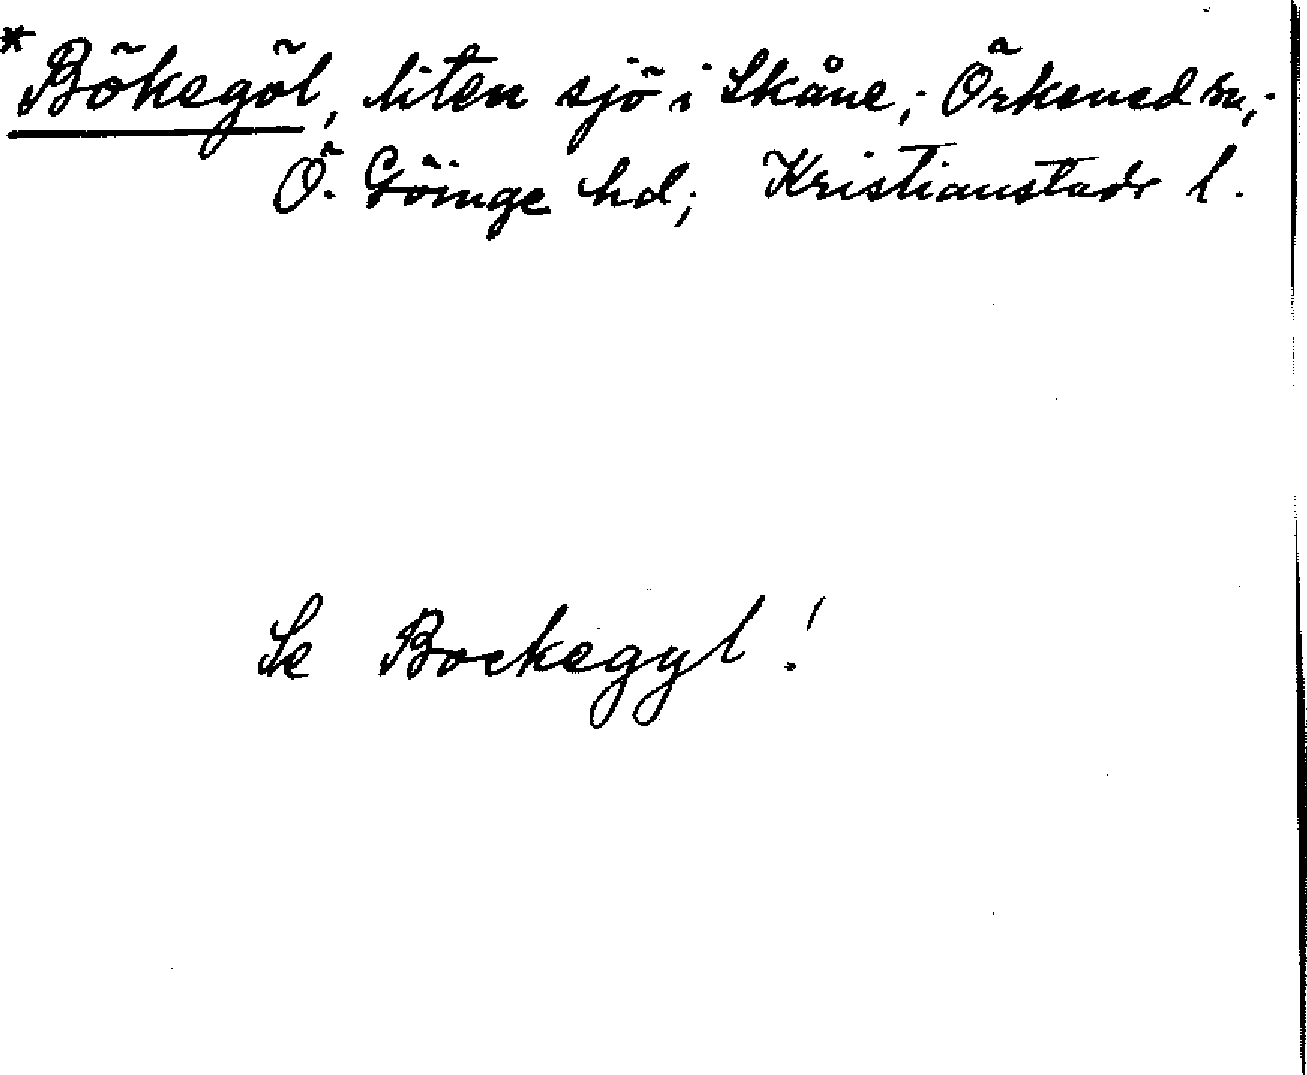 *Bökegöl, liten sjö i Skåne; Örkened sn;
Ö. Göinge hd; Kristianstads l.
Se Bockegyl!